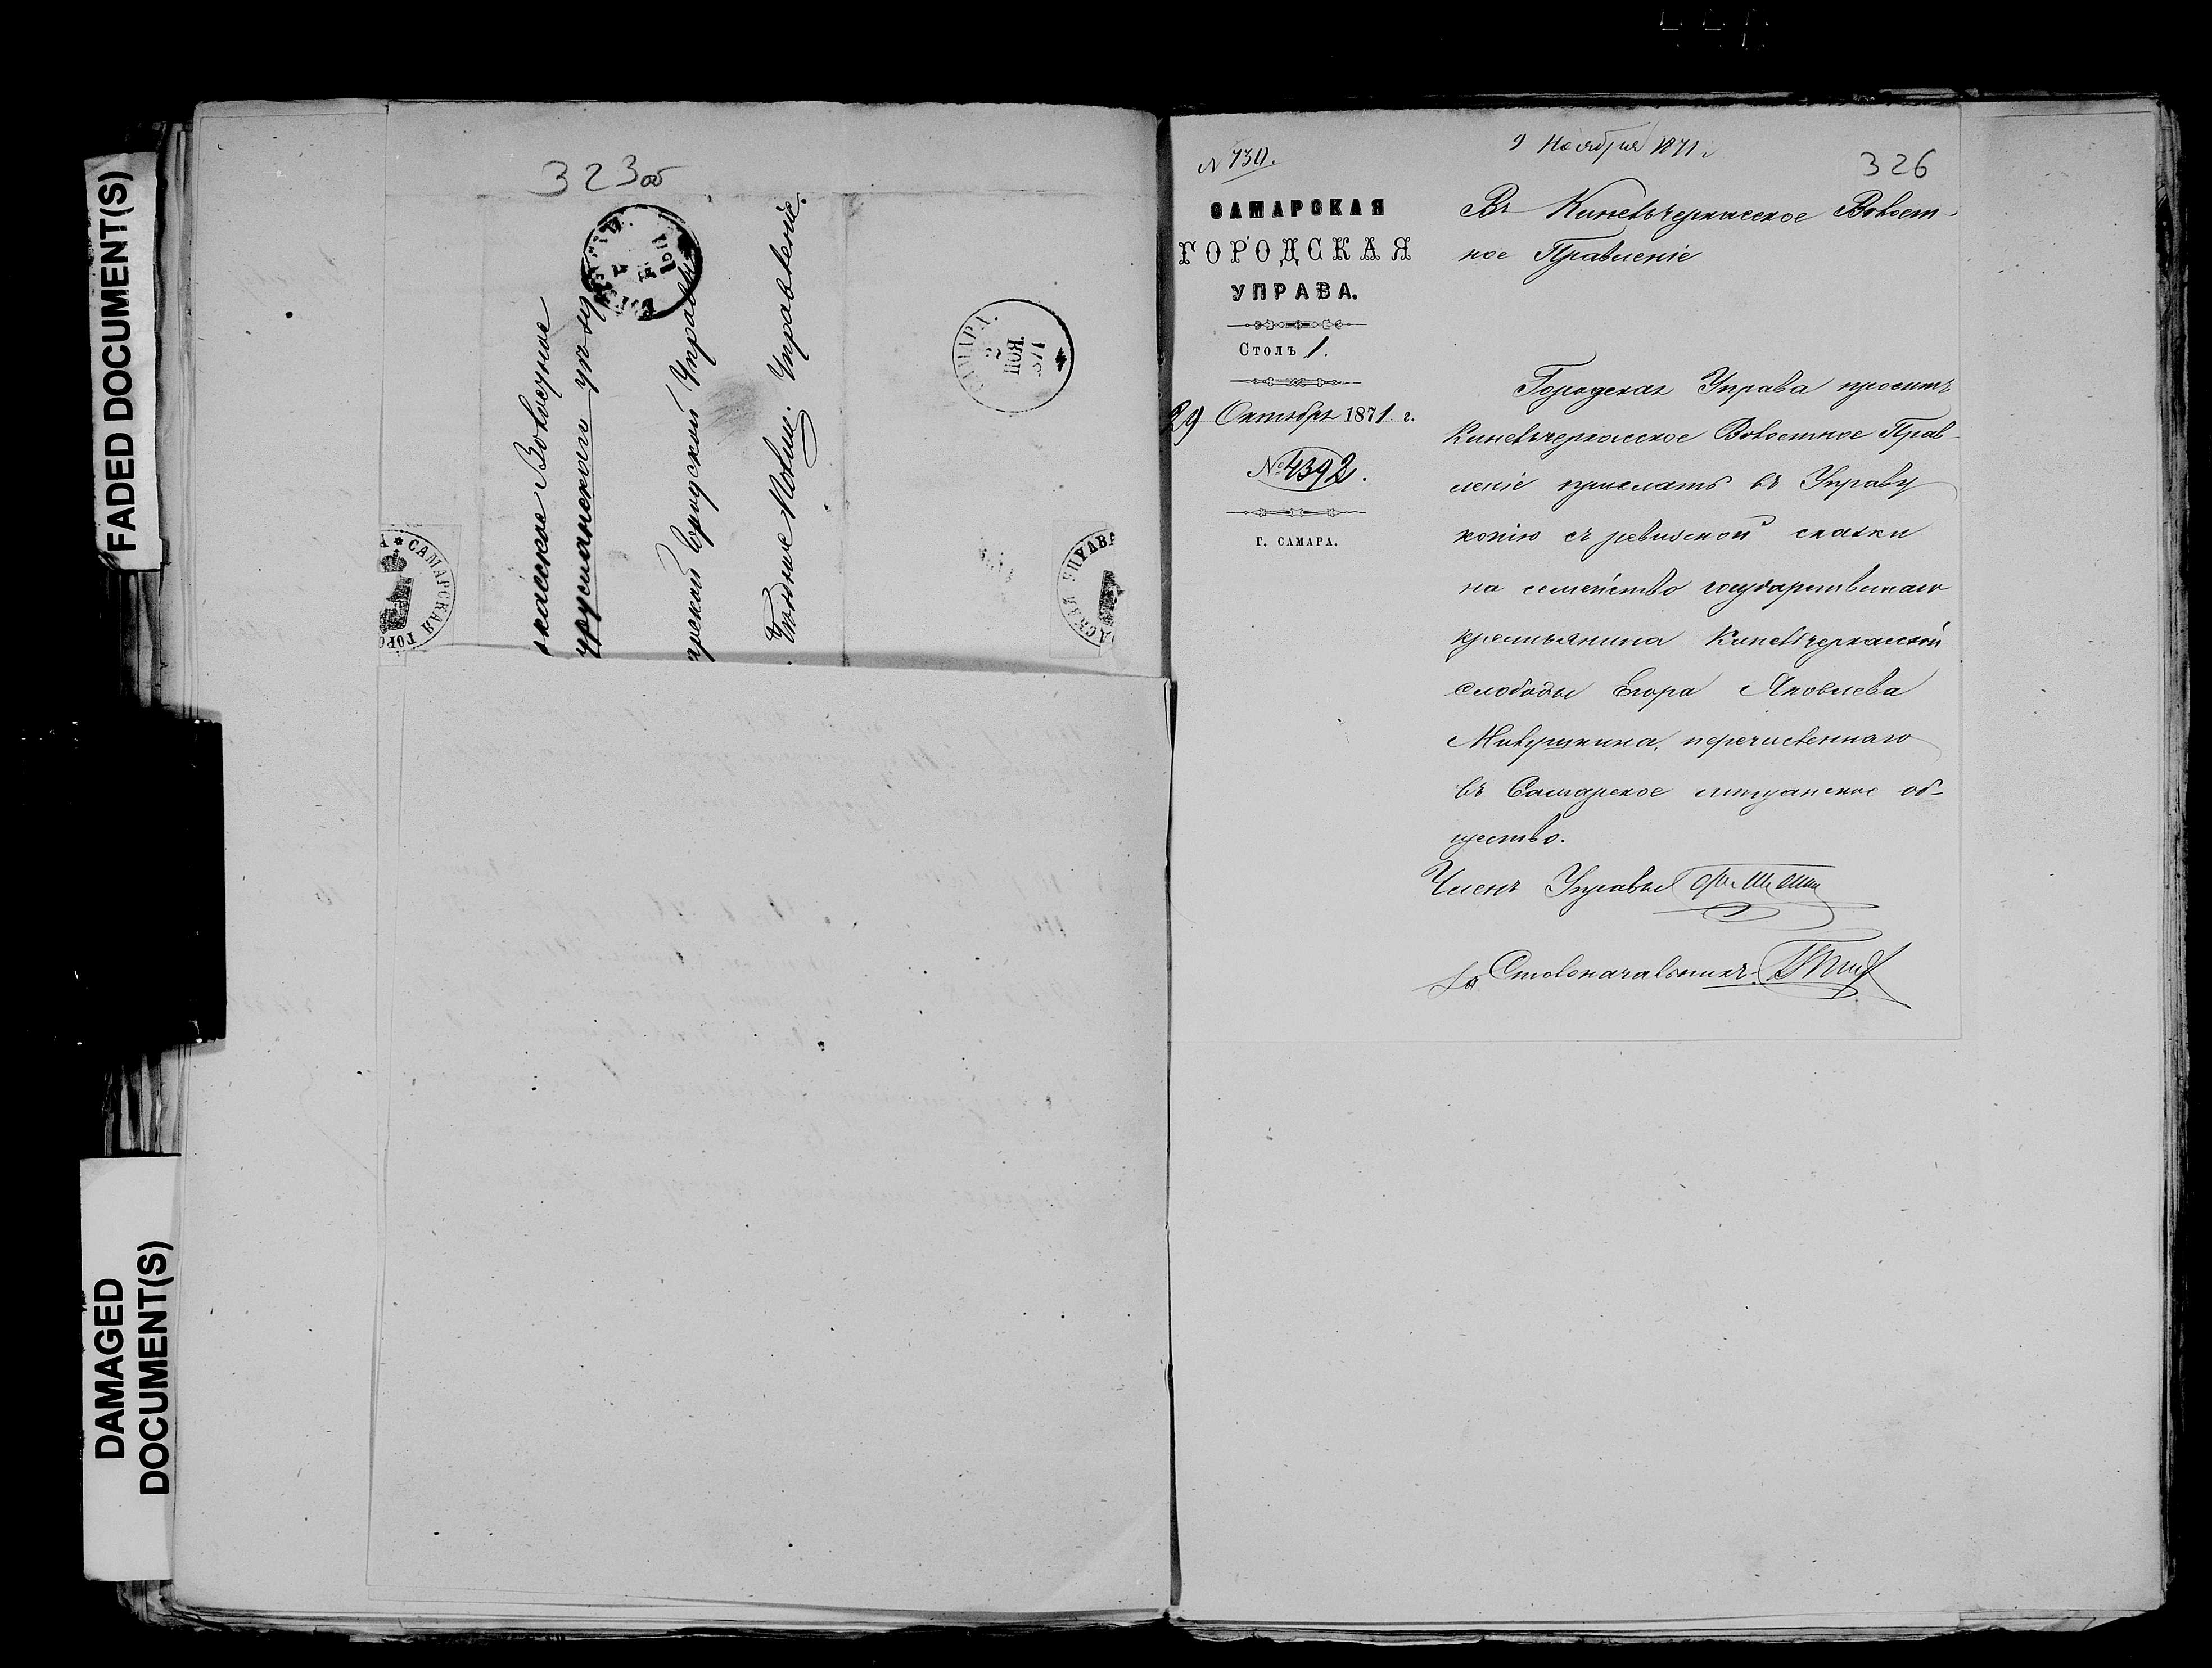 FADED DOCUMENT(S)
DAMAGED
DOCUMENT(S)
323об
Волостное
Бугурусланскаго уѣзду
Городской Управы
Волост. Управленіе.
САМАРА.
2
НОЯ
1871
САМАРСКАЯ ГОРО
ДСКАЯ УПРАВА
9 Ноября 1871 г
326
N 730.
САМАРСКАЯ
ГОРОДСКАЯ
УПРАВА.
Столъ 1.
29 Октября 1871 г.
№ 4392.
Г. САМАРА.
Въ Кинельчеркасское Волост-
ное Правленіе
Городская Управа проситъ
Кинельчеркасское Волостное Прав-
леніе прислать въ Управу
копію съ ревизской сказки
на семейство государственнаго
крестьянина Кинельчеркасской
слободы Егора Яковлева
Микушкина, перечисленнаго
въ Самарское мѣщанское об-
щество.
Членъ Управы
За Столоначальникъ